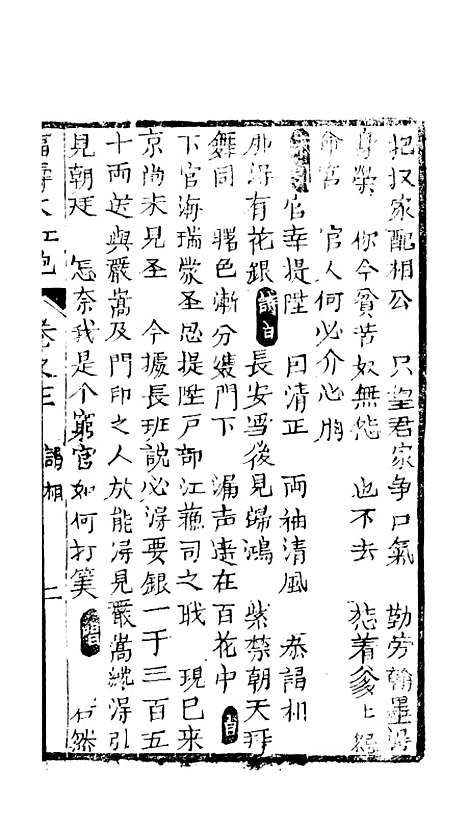 把奴家配相公　只望君家争口氣　勤劳翰墨得
身榮　你今貧苦奴無怨　也不去　愁着爹上
命宫　官人何必介心胸
官幸提陞　因清正　両袖清風　恭謁相
府得有花銀　詩白　長安雪後見歸鴻　紫禁朝天拜
舞同　曙色漸分雙門下　漏声遠在百花中　白
下官海瑞蒙圣恩提陞戸部江蘇司之戝　現巳来
京尚未見圣　今據長班說必得要銀一于三百五
十両送與嚴嵩及門印之人放能得見嚴嵩纔得引
見朝廷　怎奈我是个窮官如何打筭　白　右然
福壽大紅袍　卷之三　謁相　二